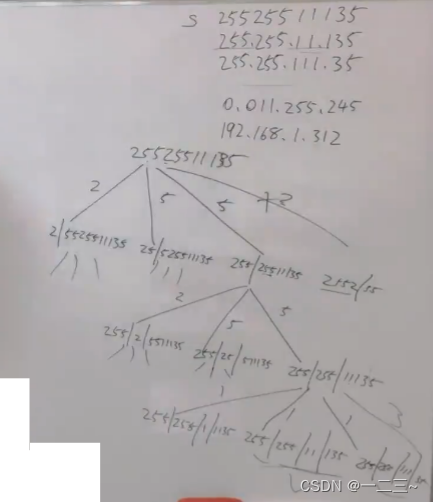 S 25525511135
255.255.11.135
255.255.111.35
0.011.255.245
192.168.1.312
25525511135
2 5 5 3
2/5525511135 25/525511135 255/25511135 2552/55
2 5 5
255/2/5511135 255/25/511135 255/255/11135
1 1 1 3
255/255/1/1135 255/255/11/135 255/255/111/35
CSDN @一二三~